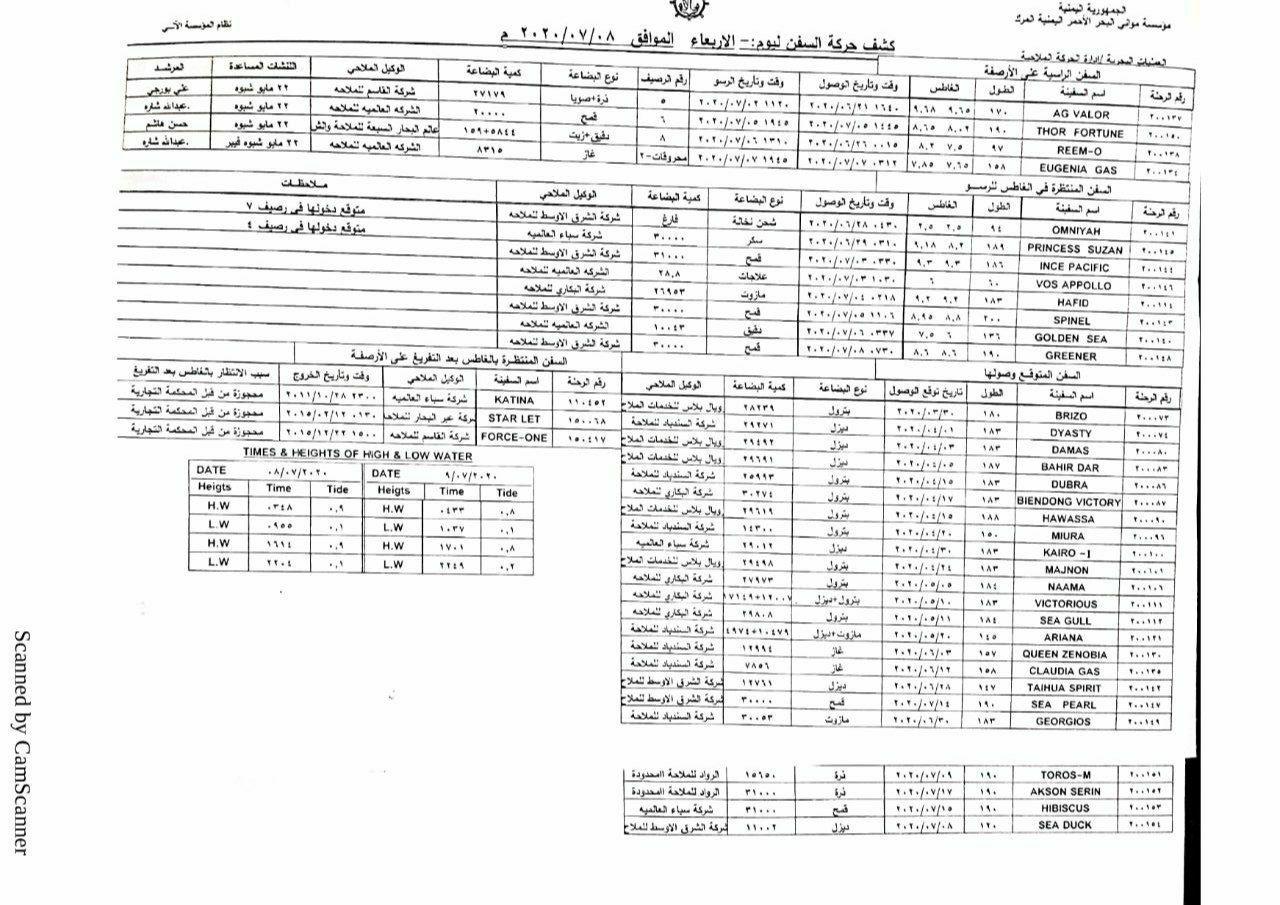 الجمهورية اليمنية
مؤسسة مواني البحر الأحمر اليمنية
نظام المؤسسة الآلي
كشف حركة السفن ليوم:- الاربعاء الموافق ٢٠٢٠/٠٧/٠٨ م
العمليات البحرية /إدارة الحركة الملاحية
السفن الراسية على الأرصفة
رقم الرحلة اسم السفينة الطول الغاطس وقت وتأريخ الوصول وقت وتأريخ الرسو رقم الرصيف نوع البضاعة كمية البضاعة الوكيل الملاحي اللنشات المساعدة المرشد
٢٠٠١٣٧ AG VALOR ١٧٠ ٩.٦٥ ٩.٦٨ ١٦٤٠ ٢٠٢٠/٠٦/٢١ ١١٢٠ ٢٠٢٠/٠٧/٠٢ ٥ ذرة+صويا ٢٧١٧٩ شركة القاسم للملاحه ٢٢ مايو شبوه علي بورجي
٢٠٠١٥٠ THOR FORTUNE ١٩٠ ٨.٠٢ ٨.٦٥ ١٤٤٥ ٢٠٢٠/٠٧/٠٥ ١٩٤٥ ٢٠٢٠/٠٧/٠٥ ٦ قمح ٢٠٠٠٠ الشركه العالميه للملاحه ٢٢ مايو شبوه عبدالله شاره.
٢٠٠١٣٨ REEM-O ٩٧ ٧.٥ ٨.٢ ٠٠١٥ ٢٠٢٠/٠٦/٢٦ ١٣١٠ ٢٠٢٠/٠٧/٠٦ ٨ دقيق+زيت ١٥٩+٥٨٤٤ عالم البحار السبعة للملاحة والش ٢٢ مايو شبوه حسن هاشم
٢٠٠١٣٤ EUGENIA GAS ١٥٨ ٧.٦٥ ٧.٨٥ ٠٣١٢ ٢٠٢٠/٠٧/٠٧ ١٩٤٥ ٢٠٢٠/٠٧/٠٧ محروقات-٢ غاز ٨٣١٥ الشركه العالميه للملاحه ٢٢ مايو شبوه فيبر عبدالله شاره.
السفن المنتظرة في الغاطس للرسو
رقم الرحلة اسم السفينة الطول الغاطس وقت وتأريخ الوصول نوع البضاعة كمية البضاعة الوكيل الملاحي ملاحظات
٢٠٠١٤١ OMNIYAH ٩٤ ٢.٥ ٢.٥ ٠٤٣٠ ٢٠٢٠/٠٦/٢٨ شحن نخالة فارغ شركة الشرق الاوسط للملاحه متوقع دخولها في رصيف ٧
٢٠٠١٤٥ PRINCESS SUZAN ١٨٩ ٨.٢ ٩.١٨ ٠٣١٠ ٢٠٢٠/٠٦/٢٩ سكر ٣٠٠٠٠ شركة سباء العالميه متوقع دخولها في رصيف ٤
٢٠٠١٤٤ INCE PACIFIC ١٨٦ ٩.٣ ٩.٣ ٠٣٣٠ ٢٠٢٠/٠٧/٠٣ قمح ٣١٠٠٠ شركة الشرق الاوسط للملاحه
٢٠٠١٤٦ VOS APPOLLO ٦٠ ٦ ١٠٣٠ ٢٠٢٠/٠٧/٠٣ علاجات ٢٨.٨ الشركه العالميه للملاحه
٢٠٠١١٤ HAFID ١٨٣ ٩.٢ ٩.٢ ٠٢١٨ ٢٠٢٠/٠٧/٠٤ مازوت ٢٦٩٥٣ شركة البكاري للملاحه
٢٠٠١٤٣ SPINEL ٢٠٠ ٨.٨ ٨.٩٥ ١١٠٦ ٢٠٢٠/٠٧/٠٥ قمح ٣٠٠٠٠ شركة الشرق الاوسط للملاحه
٢٠٠١٤٠ GOLDEN SEA ١٣٦ ٦ ٧.٥ ٠٣٣٧ ٢٠٢٠/٠٧/٠٦ دقيق ١٠٠٤٣ الشركه العالميه للملاحه
٢٠٠١٤٨ GREENER ١٩٠ ٨.٦ ٨.٦ ٠٧٣٠ ٢٠٢٠/٠٧/٠٨ قمح ٣٠٠٠٠ شركة الشرق الاوسط للملاحه
السفن المتوقع وصولها
رقم الرحلة اسم السفينة الطول تاريخ توقع الوصول نوع البضاعة كمية البضاعة الوكيل الملاحي
٢٠٠٠٧٣ BRIZO ١٨٠ ٢٠٢٠/٠٣/٣٠ بترول ٢٨٢٣٩ ويال بلاس للخدمات الملاح
٢٠٠٠٧٤ DYASTY ١٨٣ ٢٠٢٠/٠٤/٠١ ديزل ٢٩٢٧١ شركة السندباد للملاحة
٢٠٠٠٨٠ DAMAS ١٨٣ ٢٠٢٠/٠٤/٠٣ ديزل ٢٩٤٩٢ ويال بلاس للخدمات الملاح
٢٠٠٠٨٣ BAHIR DAR ١٨٧ ٢٠٢٠/٠٤/٠٥ ديزل ٢٩٦٩١ ويال بلاس للخدمات الملاح
٢٠٠٠٨٦ DUBRA ١٨٣ ٢٠٢٠/٠٤/١٥ بترول ٢٥٩٩٣ شركة السندباد للملاحة
٢٠٠٠٨٧ BIENDONG VICTORY ١٨٣ ٢٠٢٠/٠٤/١٧ بترول ٣٠٢٧٤ شركة البكاري للملاحه
٢٠٠٠٩٠ HAWASSA ١٨٨ ٢٠٢٠/٠٤/١٥ بترول ٢٩٦١٩ ويال بلاس للخدمات الملاح
٢٠٠٠٩٦ MIURA ١٥٠ ٢٠٢٠/٠٤/٢٠ بترول ١٤٣٠٠ شركة السندباد للملاحة
٢٠٠١٠٠ KAIRO -I ١٨٣ ٢٠٢٠/٠٤/٣٠ ديزل ٢٩٠١٢ شركة سباء العالميه
٢٠٠١٠١ MAJNON ١٨٣ ٢٠٢٠/٠٤/٢٤ بترول ٢٩٤٩٨ ويال بلاس للخدمات الملاح
٢٠٠١٠٦ NAAMA ١٨٤ ٢٠٢٠/٠٥/٠٥ بترول ٢٧٩٧٣ شركة البكاري للملاحه
٢٠٠١١١ VICTORIOUS ١٨٣ ٢٠٢٠/٠٥/١٠ بترول+ديزل ١٧١٤٩+١٢٠٠٧ شركة البكاري للملاحه
٢٠٠١١٢ SEA GULL ١٨٤ ٢٠٢٠/٠٥/١١ بترول ٢٩٨٠٨ شركة البكاري للملاحه
٢٠٠١٢١ ARIANA ١٤٥ ٢٠٢٠/٠٥/٢٠ مازوت+ديزل ٤٩٧٤+١٠٤٧٩ شركة السندباد للملاحة
٢٠٠١٣٠ QUEEN ZENOBIA ١٥٧ ٢٠٢٠/٠٦/٠٣ غاز ١٢٩٩٤ شركة السندباد للملاحة
٢٠٠١٣٥ CLAUDIA GAS ١٥٨ ٢٠٢٠/٠٦/١٢ غاز ٧٨٥٦ شركة السندباد للملاحة
٢٠٠١٤٢ TAIHUA SPIRIT ١٤٧ ٢٠٢٠/٠٦/٢٨ ديزل ١٢٧٦١ شركة الشرق الاوسط للملاح
٢٠٠١٤٧ SEA PEARL ١٩٠ ٢٠٢٠/٠٧/١٤ قمح ٣٠٠٠٠ شركة الشرق الاوسط للملاح
٢٠٠١٤٩ GEORGIOS ١٨٣ ٢٠٢٠/٠٦/٣٠ مازوت ٣٠٠٥٣ شركة السندباد للملاحة
٢٠٠١٥١ TOROS-M ١٩٠ ٢٠٢٠/٠٧/٠٩ ذرة ١٥٦٥٠ الرواد للملاحة االمحدودة
٢٠٠١٥٢ AKSON SERIN ١٩٠ ٢٠٢٠/٠٧/١٧ ذرة ٣١٠٠٠ الرواد للملاحة االمحدودة
٢٠٠١٥٣ HIBISCUS ١٩٠ ٢٠٢٠/٠٧/١٥ قمح ٣١٠٠٠ شركة سباء العالميه
٢٠٠١٥٤ SEA DUCK ١٢٠ ٢٠٢٠/٠٧/٠٨ ديزل ١١٠٠٢ شركة الشرق الاوسط للملاح
السفن المنتظرة بالغاطس بعد التفريغ على الأرصفة
رقم الرحلة اسم السفينة الوكيل الملاحي وقت وتأريخ الخروج سبب الانتظار بالغاطس بعد التفريغ
١١٠٤٥٢ KATINA شركة سباء العالميه ٢٣٠٠ ٢٠١١/١٠/٢٨ محجوزة من قبل المحكمة التجارية
١٥٠٠٦٨ STAR LET شركة عبر البحار للملاحه ٠١٣٠ ٢٠١٥/٠٢/١٢ محجوزة من قبل المحكمة التجارية
١٥٠٤١٧ FORCE-ONE شركة القاسم للملاحه ١٥٠٠ ٢٠١٥/١٢/٢٢ محجوزة من قبل المحكمة التجارية
TIMES & HEIGHTS OF HIGH & LOW WATER
DATE ٠٨/٠٧/٢٠٢٠ DATE ٩/٠٧/٢٠٢٠
Heigts Time Tide Heigts Time Tide
H.W ٠٣٤٨ ٠.٩ H.W ٠٤٣٣ ٠.٨
L.W ٠٩٥٥ ٠.١ L.W ١٠٣٧ ٠.١
H.W ١٦١٤ ٠.٩ H.W ١٧٠١ ٠.٨
L.W ٢٢٠٤ ٠.١ L.W ٢٢٤٩ ٠.٢
Scanned by CamScanner